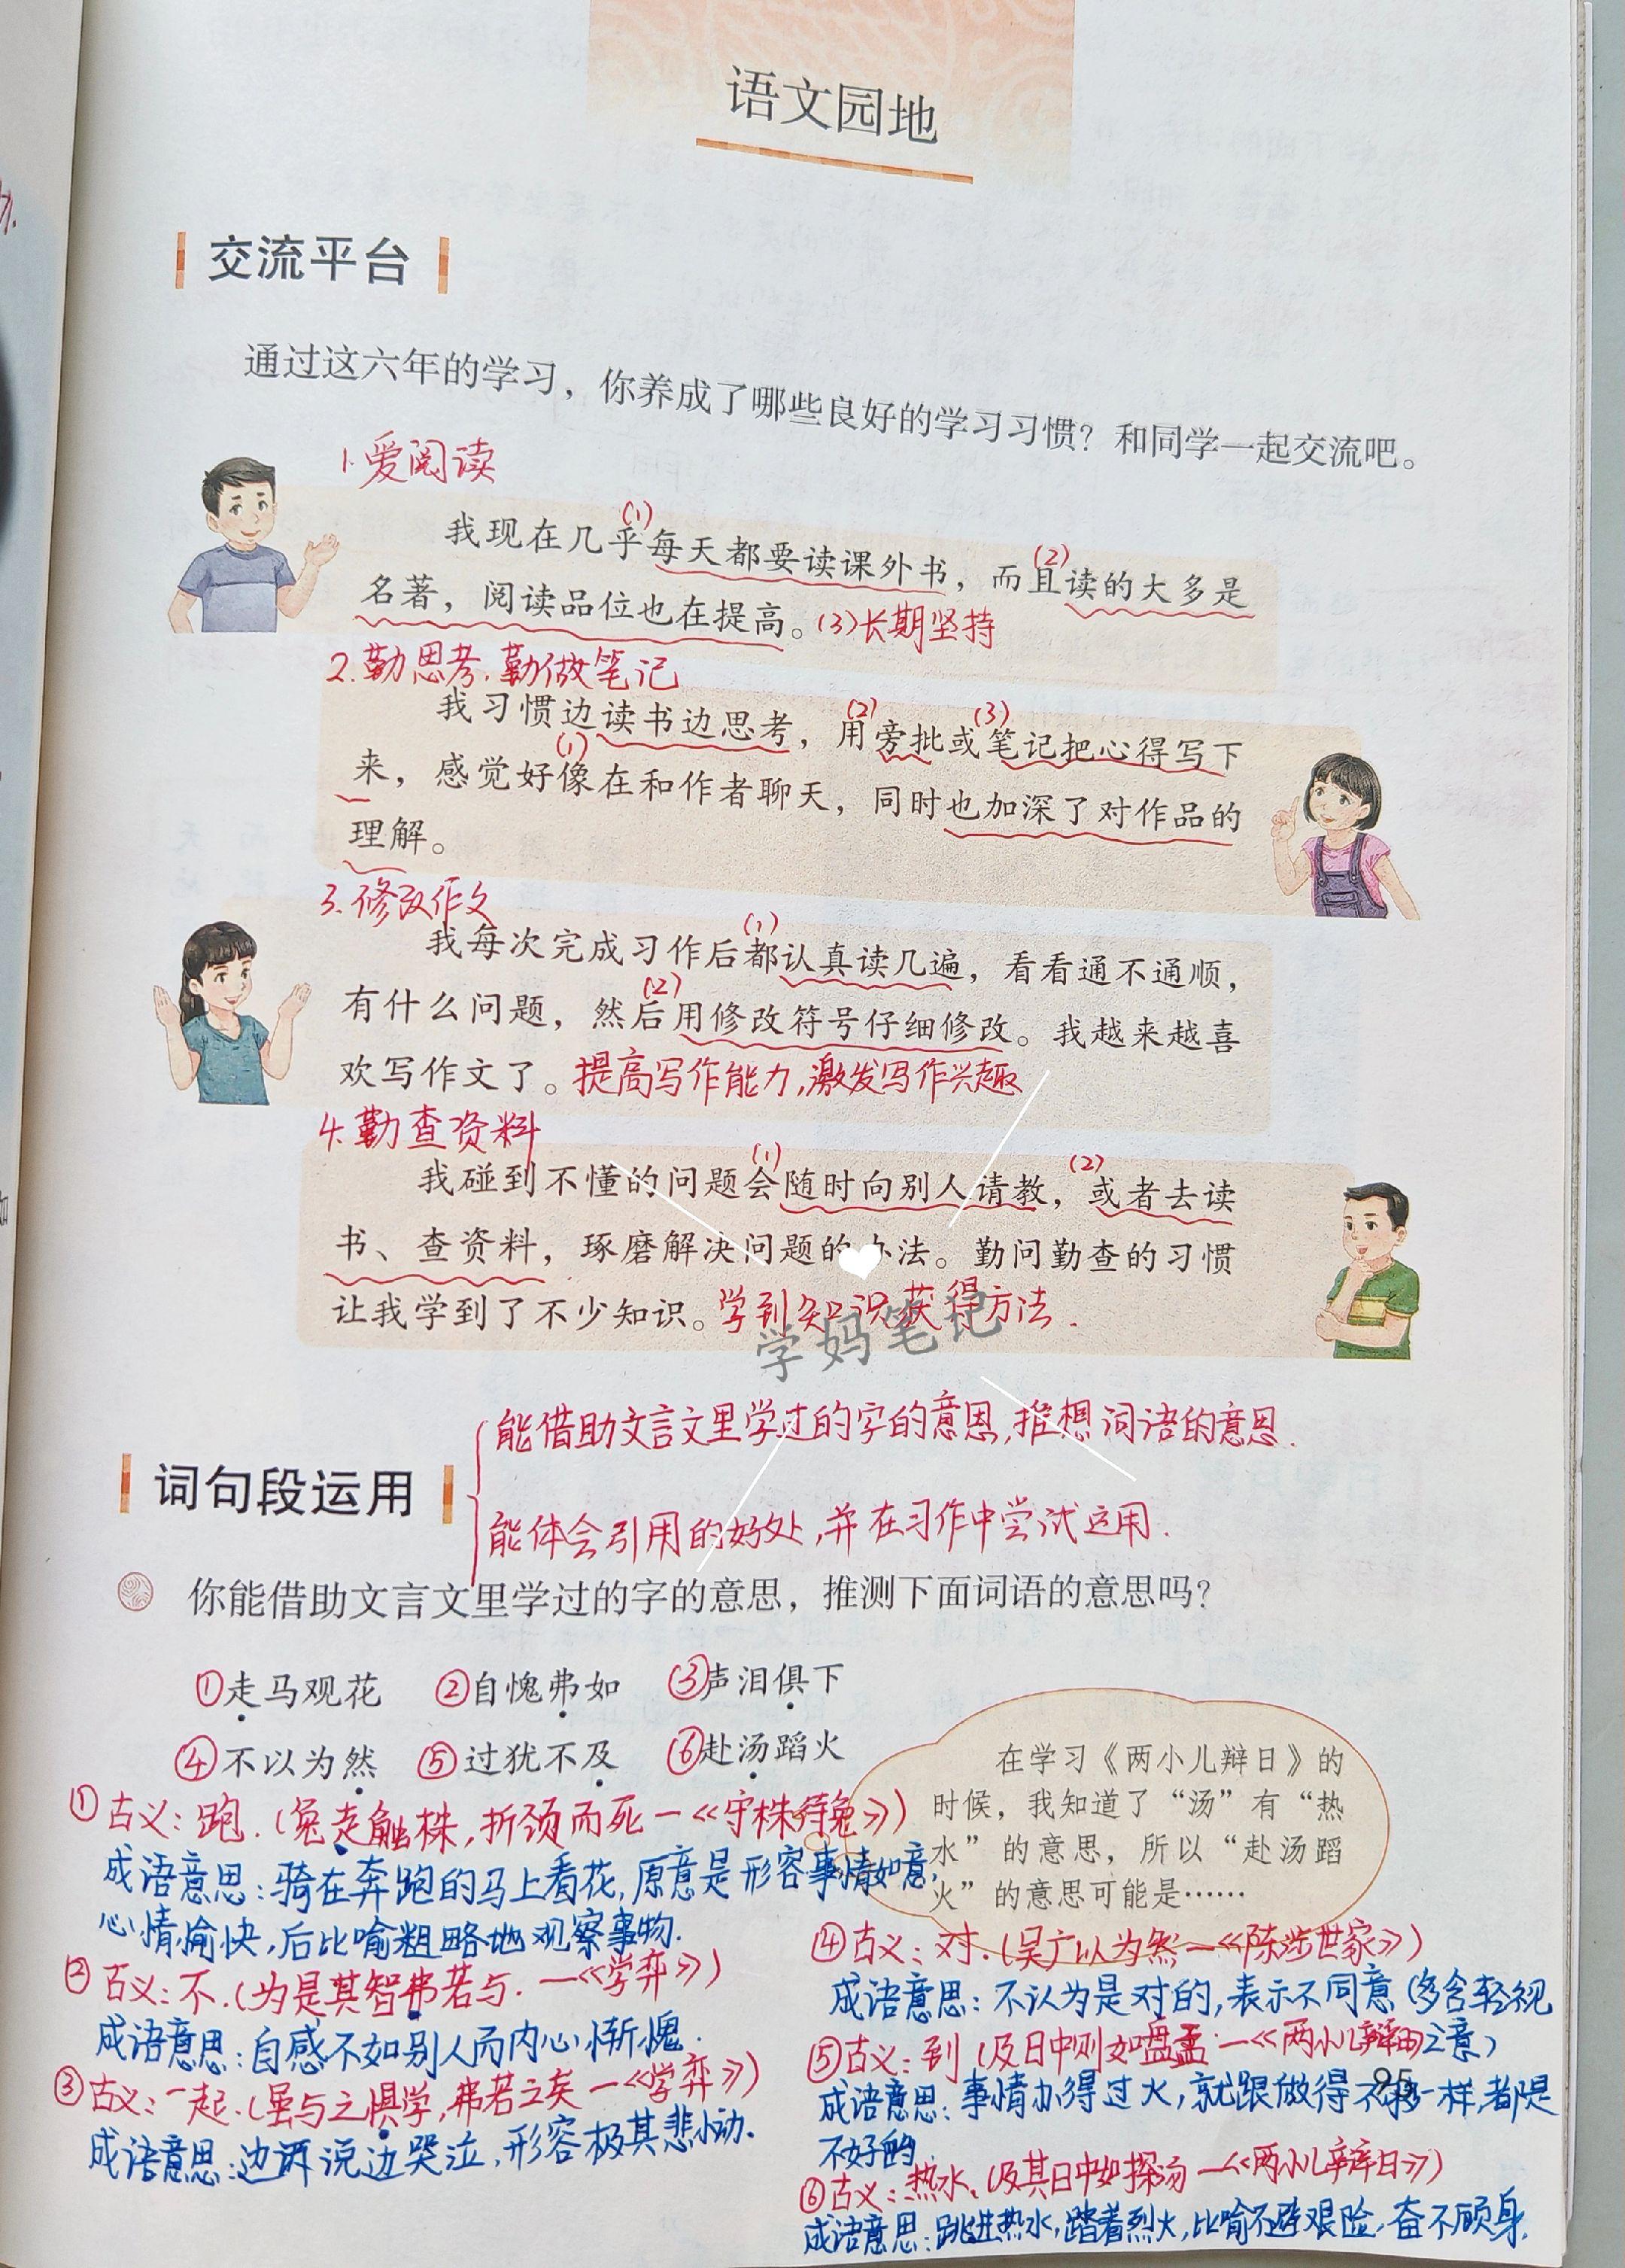 语文园地
交流平台
通过这六年的学习，你养成了哪些良好的学习习惯？和同学一起交流吧。
1.爱阅读
(1)
(2)
我现在几乎每天都要读课外书，而且读的大多是
名著，阅读品位也在提高。(3)长期坚持
2.勤思考.勤做笔记
(2)
(3)
我习惯边读书边思考，用旁批或笔记把心得写下
(1)
来，感觉好像在和作者聊天，同时也加深了对作品的
理解。
3.修改作文
(1)
我每次完成习作后都认真读几遍，看看通不通顺，
(2)
有什么问题，然后用修改符号仔细修改。我越来越喜
欢写作文了。提高写作能力,激发写作兴趣
4.勤查资料
(1)
(2)
我碰到不懂的问题会随时向别人请教，或者去读
书、查资料，琢磨解决问题的办法。勤问勤查的习惯
让我学到了不少知识。学到知识获得方法.
学妈笔记
能借助文言文里学过的字的意思,推想词语的意思.
词句段运用
能体会引用的好处,并在习作中尝试运用.
你能借助文言文里学过的字的意思，推测下面词语的意思吗？
①走马观花 ②自愧弗如 ③声泪俱下
④不以为然 ⑤过犹不及 ⑥赴汤蹈火
在学习《两小儿辩日》的
时候，我知道了“汤”有“热
水”的意思，所以“赴汤蹈
火”的意思可能是……
①古义:跑.(兔走触株,折颈而死—《守株待兔》)
成语意思:骑在奔跑的马上看花,原意是形容事情如意,
心情愉快,后比喻粗略地观察事物.
②古义:不.(为是其智弗若与.—《学弈》)
成语意思:自感不如别人而内心惭愧.
③古义:一起.(虽与之俱学,弗若之矣—《学弈》)
成语意思:边诉说边哭泣,形容极其悲恸.
④古义:对.(吴广以为然—《陈涉世家》)
成语意思:不认为是对的,表示不同意(多含轻视
之意)
⑤古义:到(及日中则如盘盂—《两小儿辩日》
成语意思:事情办得过火,就跟做得不够一样,都是
不好的.
⑥古义:热水.(及其日中如探汤—《两小儿辩日》)
成语意思:跳进热水,踏着烈火,比喻不避艰险,奋不顾身.
95